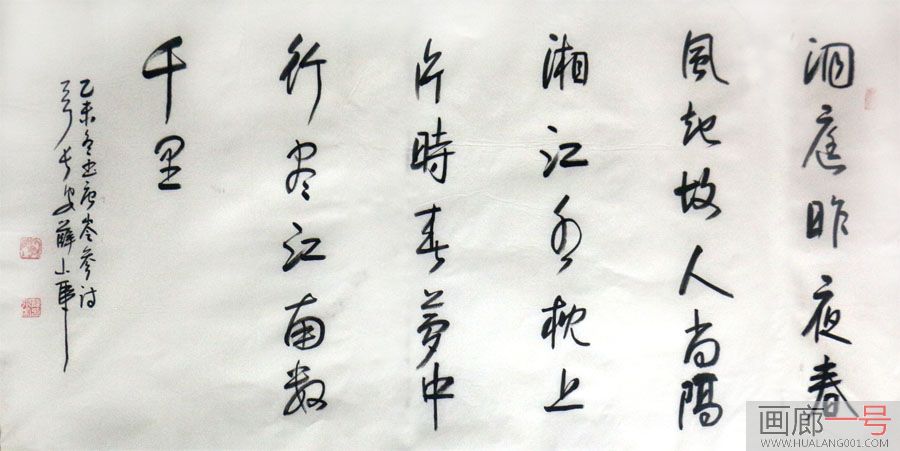 洞庭昨夜春
風起故人尚隔
湘江水枕上
片時春夢中
行尽江南数
千里
乙未冬书唐岑參诗
于长安薛小軍
画廊一号
WWW.HUALANG001.COM